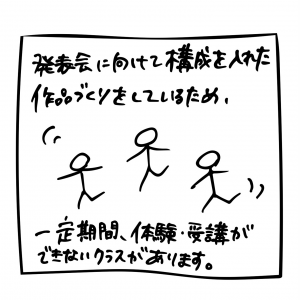 発表会に向けて構成を入れた
作品づくりをしているため、
一定期間、体験・受講が
できないクラスがあります。